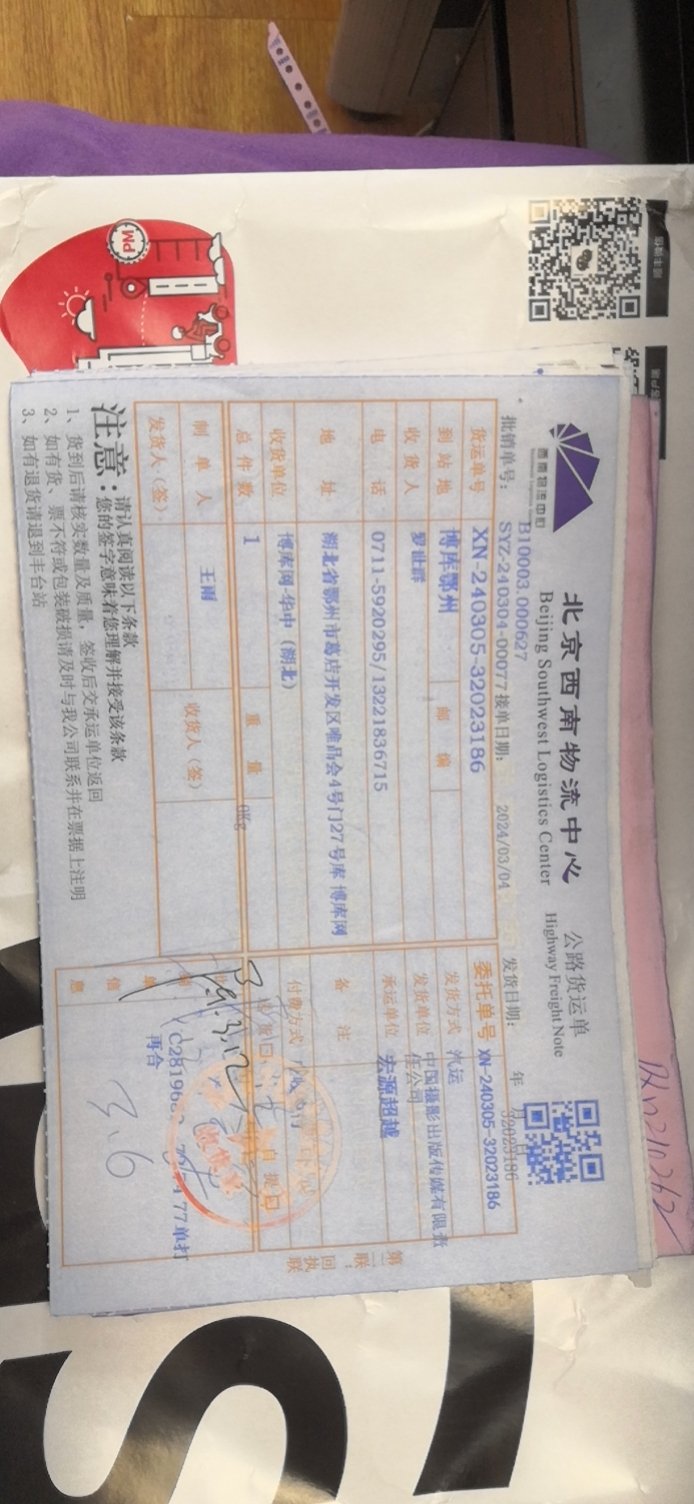 西南物流中心
北京西南物流中心
Beijing Southwest Logistics Center
公路货运单
Highway Freight Note
B10003.000627
批销单号: SYZ-240304-00077 接单日期: 2024/03/04 发货日期: 年 月 日
32023186
货运单号 XN-240305-32023186 委托单号 XN-240305-32023186
到站地 博库鄂州 邮编 发货方式 汽运
收货人 罗世群 发货单位 中国摄影出版传媒有限责任公司
电话 0711-5920295/13221836715 承运单位 宏源超越
地址 湖北省鄂州市葛店开发区唯品会4号门27号库 博库网 备注
收货单位 博库网-华中(湖北) 付费方式
总件数 1 重量 0Kg 自提口
制单人 王雨 收货人(签)
发货人(签)
信息
再合
77单打
3.6
第二联:回执联
注意:
请认真阅读以下条款
您的签字意味着您理解并接受该条款
1、货到后请核实数量及质量,签收后交承运单位返回
2、如有货、票不符或包装破损请及时与我公司联系并在票据上注明
3、如有退货请退到丰台站
PM